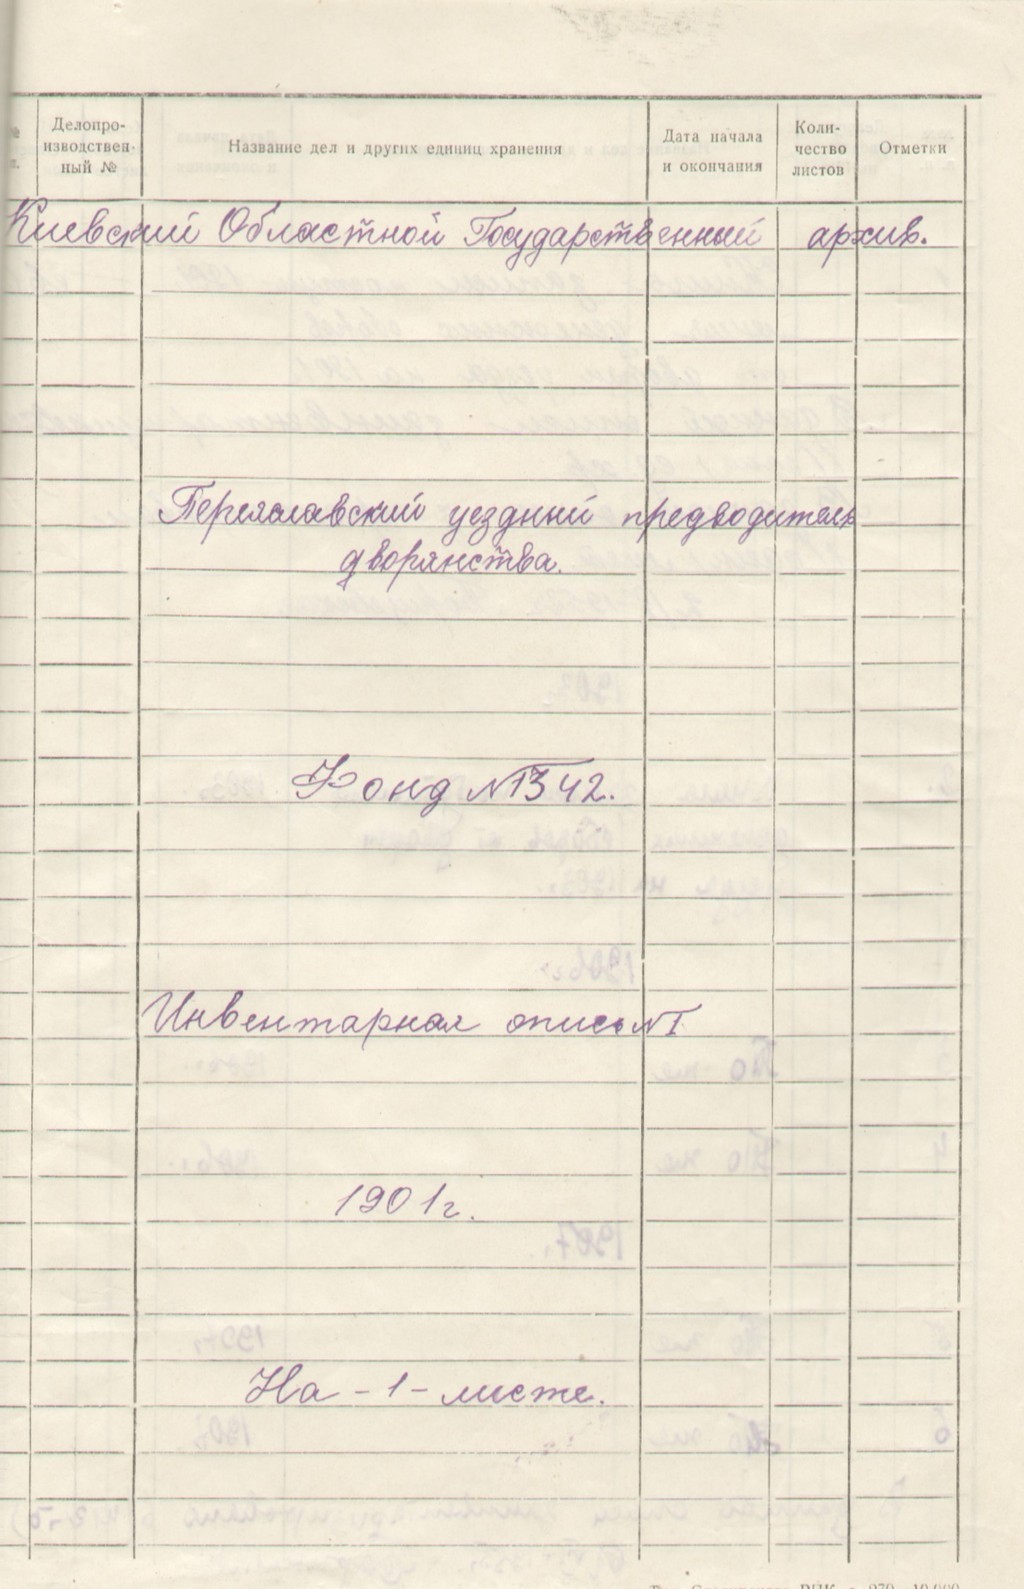 Делопро-
изводствен-
ный №
Название дел и других единиц хранения
Дата начала
и окончания
Коли-
чество
листов
Отметки
Киевский Областной Государственный архив.
Переяславский уездный предводитель
дворянства.
Фонд №1342.
Инвентарная опись №1
1901г.
На - 1 - листе.